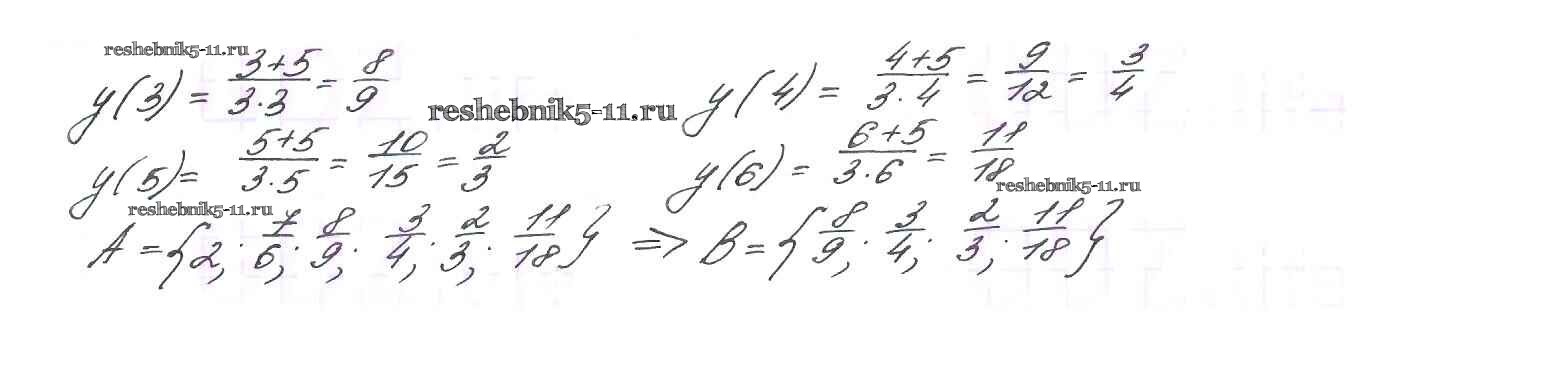 reshebnik5-11.ru
y(3) = (3+5)/(3·3) = 8/9 reshebnik5-11.ru y(4) = (4+5)/(3·4) = 9/12 = 3/4
y(5) = (5+5)/(3·5) = 10/15 = 2/3 y(6) = (6+5)/(3·6) = 11/18
reshebnik5-11.ru
reshebnik5-11.ru
A = {2; 7/6; 8/9; 3/4; 2/3; 11/18} => B = {8/9; 3/4; 2/3; 11/18}